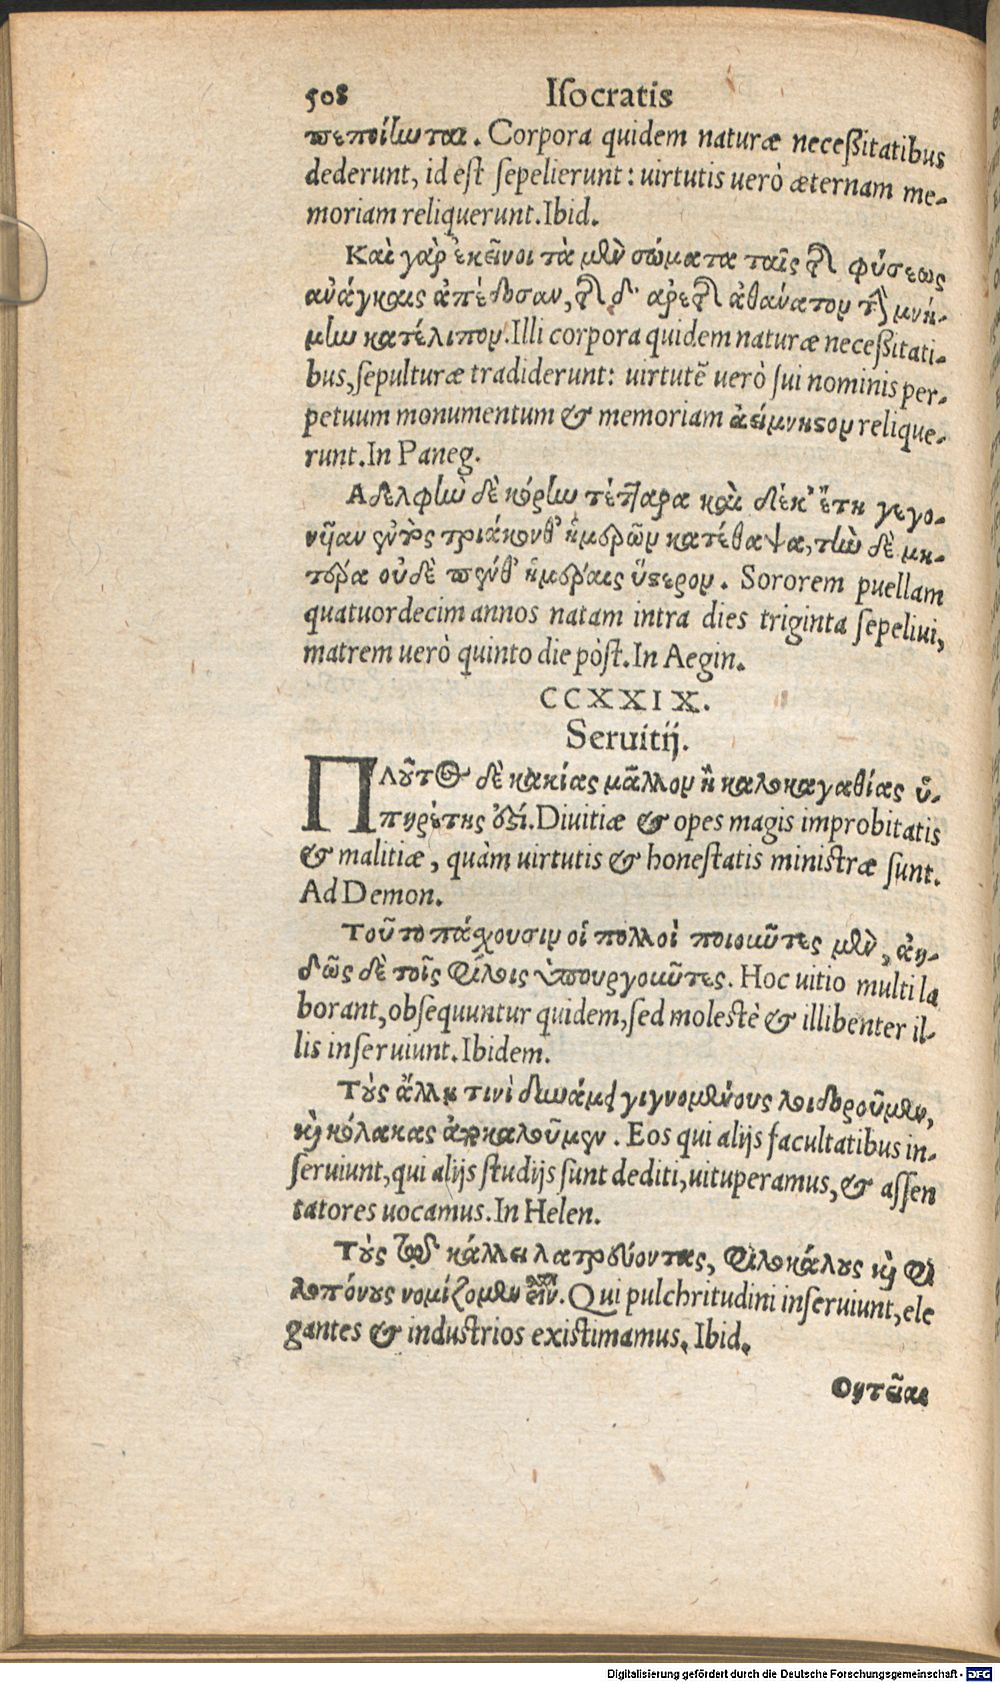 508 Iſocratis
πεποίηνται. Corpora quidem naturæ neceßitatibus
dederunt, id eſt ſepelierunt: uirtutis uerò æternam me-
moriam reliquerunt. Ibid.
Καὶ γὰρ ἐκεῖνοι τὰ μὲν σώματα ταῖς τῆς φύσεως
ἀνάγκαις ἀπέδοσαν, τῆς δ' ἀρετῆς ἀθάνατον τὴν μνή-
μην κατέλιπον. Illi corpora quidem naturæ neceßitati-
bus, ſepulturæ tradiderunt: uirtutẽ uerò ſui nominis per-
petuum monumentum & memoriam ἀείμνηστον relique-
runt. In Paneg.
Αδελφὴν δὲ κόρην τέτταρα καὶ δέκ' ἔτη γεγο-
νῆαν ἐντὸς τριάκονθ' ἡμερῶν κατέθαψα, τὴν δὲ μη-
τέρα οὐδὲ πένθ' ἡμέραις ὕστερον. Sororem puellam
quatuordecim annos natam intra dies triginta ſepeliui,
matrem uerò quinto die pòſt. In Aegin.
CCXXIX.
Seruitij.
ΠΛοῦτος δὲ κακίας μᾶλλον ἢ καλοκαγαθίας ὑ-
πηρέτης ἐστί. Diuitiæ & opes magis improbitatis
& malitiæ, quàm uirtutis & honeſtatis miniſtræ ſunt.
Ad Demon.
Τοῦτο πάχουσιν οἱ πολλοὶ ποιοῦντες μὲν, ἀη-
δῶς δὲ τοῖς φίλοις ὑπουργοῦντες. Hoc uitio multi la
borant, obſequuntur quidem, ſed moleſtè & illibenter il-
lis inſeruiunt. Ibidem.
Τοὺς ἄλλῃ τινὶ δυνάμει γιγνομένους λοιδοροῦμεν,
καὶ κόλακας ἀποκαλοῦμεν. Eos qui alijs facultatibus in-
ſeruiunt, qui alijs ſtudijs ſunt dediti, uituperamus, & aſſen
tatores uocamus. In Helen.
Τοὺς τῷ κάλλει λατρεύοντας, φιλοκάλους καὶ φι
λοπόνους νομίζομεν εἶναι. Qui pulchritudini inſeruiunt, ele
gantes & induſtrios exiſtimamus. Ibid.
Ουτε͂αι
Digitalisierung gefördert durch die Deutsche Forschungsgemeinschaft - DFG